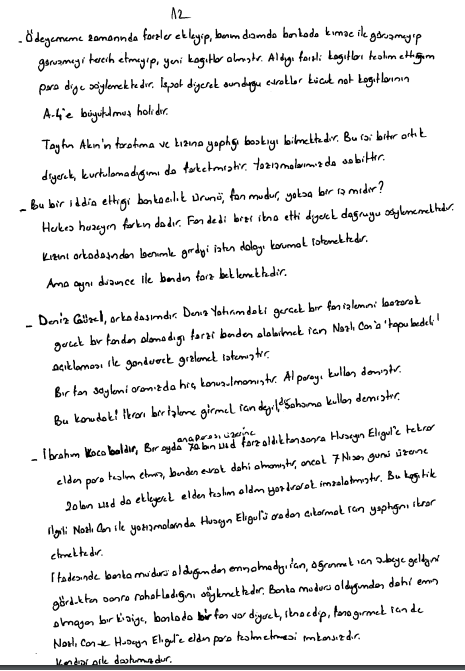 12
- Ödeyememe zamanında faizler ekleyip, benim dışımda bankada kimse ile görüşmeyip
görüşmeyi tercih etmeyip, yeni kağıtlar almıştır. Aldığı faizli kağıtları teslim ettiğim
para diye söylemektedir. İspat diyerek sunduğu evraklar küçük not kağıtlarının
A-4'e büyütülmüş halidir.
Tayfun Akın'ın tarafıma ve kızına yaptığı baskıyı bilmektedir. Bu işi bitir artık
diyerek, kurtulamadığımı da farketmiştir. Yazışmalarımızda sabittir.
- Bu bir iddia ettiği bankacılık ürünü, fon mudur, yoksa bir iş midir?
Herkes herşeyin farkındadır. Fon dedi bizi ikna etti diyerek doğruyu söylememektedir.
Kızını arkadaşından benimle girdiği işten dolayı korumak istemektedir.
Ama aynı düşünce ile benden faiz beklemektedir.
- Deniz Güzel, arkadaşımdır. Deniz Yatırımdaki gerçek bir fon işlemini bozarak
gerçek bir fondan alamadığı faizi benden alabilmek için Nazlı Can'a "tapu bedeli"
açıklaması ile göndererek gizlemek istemiştir.
Bir fon söylemi aramızda hiç konuşulmamıştır. Al parayı kullan demiştir.
Bu konudaki ikrarı bir işleme girmek için değil, şahsıma kullan demiştir.
- İbrahim Kocabaldır, Bir ayda anaparası üzerine 70bin usd faiz aldıktan sonra Hüseyin Eligül'e tekrar
elden para teslim etmiş, benden evrak dahi almamıştır, ancak 7 Nisan günü üzerine
20bin usd da ekleyerek elden teslim aldım yazdırarak imzalatmıştır. Bu kağıt ile
ilgili Nazlı Can ile yazışmalarında Hüseyin Eligül'ü aradan çıkarmak için yaptığını ikrar
etmektedir.
İfadesinde banka müdürü olduğumdan emin olmadığı için, öğrenmek için şubeye geldiğini
gördükten sonra rahatladığını söylemektedir. Banka müdürü olduğumdan dahi emin
olmayan bir kişiye, bankada bir fon var diyerek, ikna edip, fona girmek için de
Nazlı Can ve Hüseyin Eligül'e elden para teslim etmesi imkansızdır.
Kendisi aile dostumuzdur.